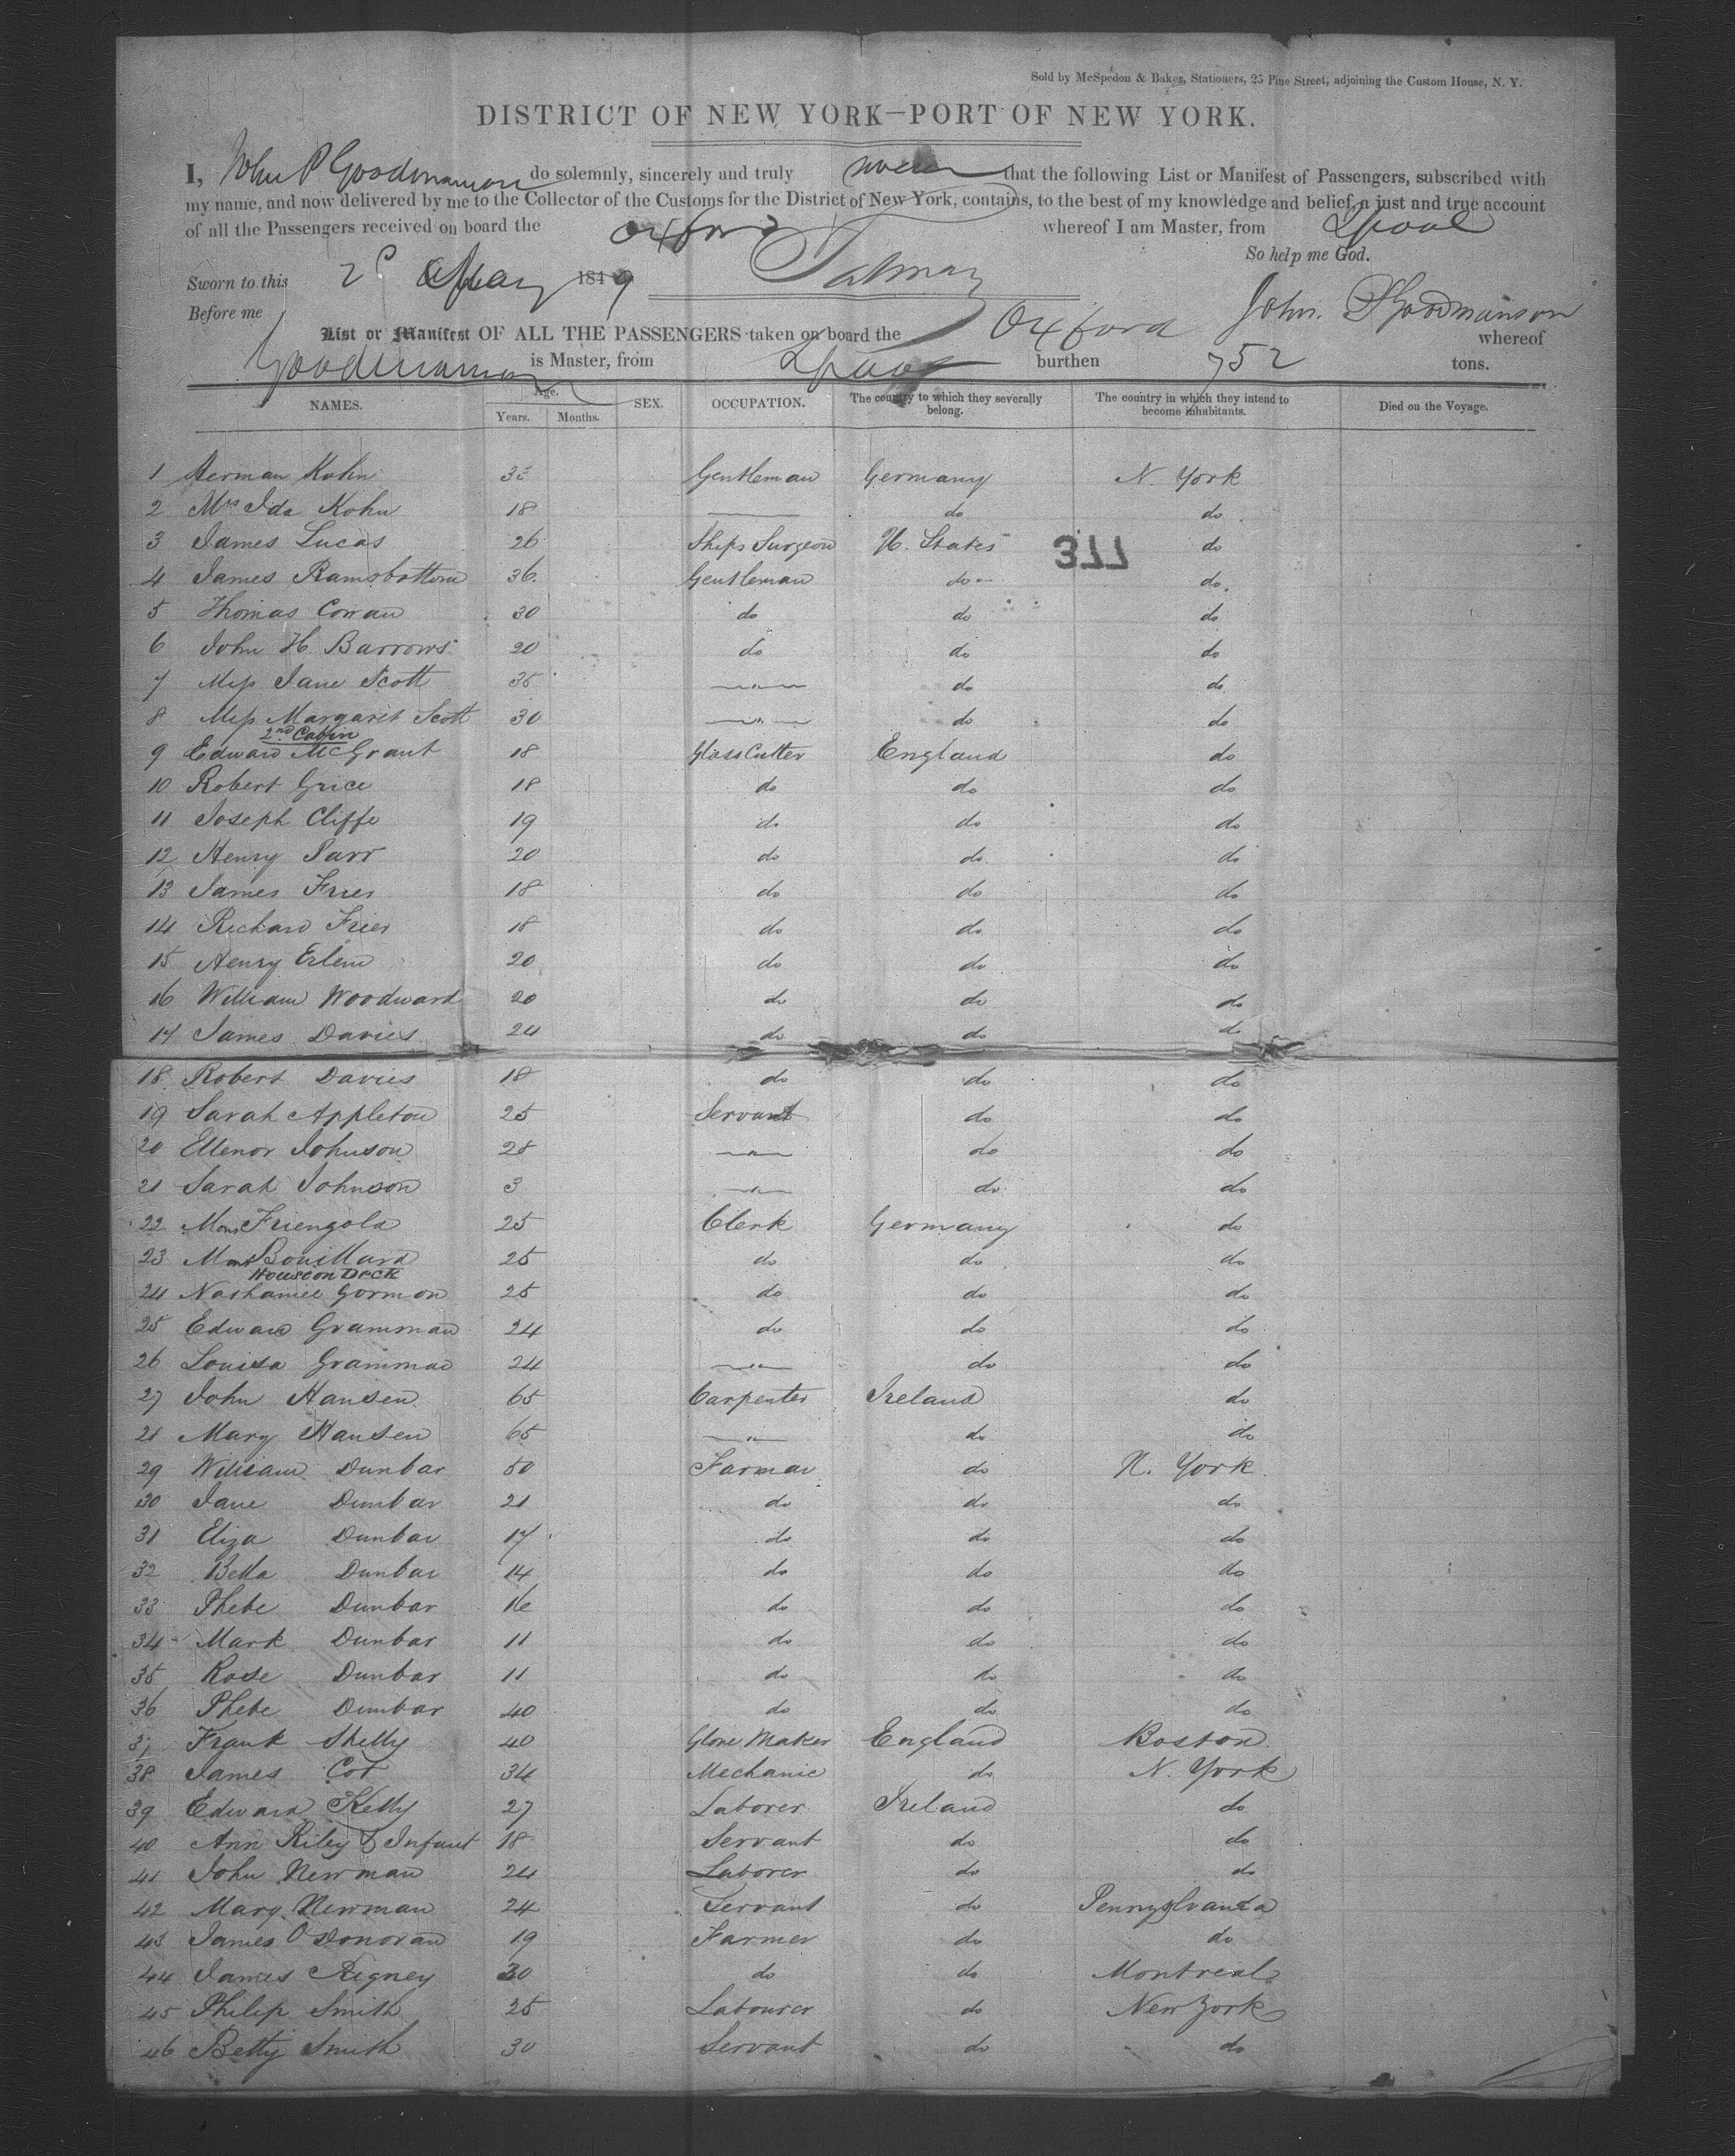 Sold by McSpedon & Baker, Stationers, 25 Pine Street, adjoining the Custom House, N. Y.
DISTRICT OF NEW YORK—PORT OF NEW YORK.
I, John P Goodmanson do solemnly, sincerely and truly swear that the following List or Manifest of Passengers, subscribed with
my name, and now delivered by me to the Collector of the Customs for the District of New York, contains, to the best of my knowledge and belief, a just and true account
of all the Passengers received on board the Oxford whereof I am Master, from Lpool
So help me God.
Sworn to this 2d May 1849
Before me John. P Goodmanson
List or Manifest OF ALL THE PASSENGERS taken on board the Oxford whereof
Goodmanson is Master, from Lpool burthen 752 tons.
NAMES. Age. Years. Months. SEX. OCCUPATION. The country to which they severally belong. The country in which they intend to become inhabitants. Died on the Voyage.
1 Herman Kohn 33 Gentleman Germany N. York
2 Mrs Ida Kohn 18 do do
3 James Lucas 26 Ships Surgeon U. States 377 do
4 James Ramsbottom 36 Gentleman do do
5 Thomas Cowan 30 do do do
6 John H. Barrows 20 do do do
7 Miss Jane Scott 35 " do do
8 Miss Margaret Scott 30 " do do
2nd Cabin
9 Edward McGrant 18 Glass Cutter England do
10 Robert Grice 18 do do do
11 Joseph Cliffe 19 do do do
12 Henry Parr 20 do do do
13 James Frier 18 do do do
14 Richard Frier 18 do do do
15 Henry 20 do do do
16 William Woodward 20 do do do
17 James Davies 24 do do do
18 Robert Davies 18 do do do
19 Sarah Appleton 25 Servant do do
20 Ellenor Johnson 28 " do do
21 Sarah Johnson 3 " do do
22 Mons Friengola 25 Clerk Germany do
23 Mons Bouillard 25 do do do
House on Deck
24 Nathaniel Gormon 25 do do do
25 Edward Gramman 24 do do do
26 Louisa Grammac 24 " do do
27 John Hansen 65 Carpenter Ireland do
28 Mary Hansen 65 " do do
29 William Dunbar 50 Farmar do N. York
30 Jane Dunbar 21 do do do
31 Eliza Dunbar 17 do do do
32 Bella Dunbar 14 do do do
33 Phebe Dunbar 16 do do do
34 Mark Dunbar 11 do do do
35 Rose Dunbar 11 do do do
36 Phebe Dunbar 40 do do do
37 Frank Shelly 40 Glove Maker England Boston
38 James Cox 34 Mechanic do N. York
39 Edward Kelly 27 Laborer Ireland do
40 Ann Riley & Infant 18 Servant do do
41 John Newman 24 Laborer do do
42 Mary Newman 24 Servant do Pennyslvanda
43 James O'Donovan 19 Farmer do do
44 James Rigney 30 do do Montreal
45 Philip Smith 25 Labourer do New York
46 Betty Smith 30 Servant do do